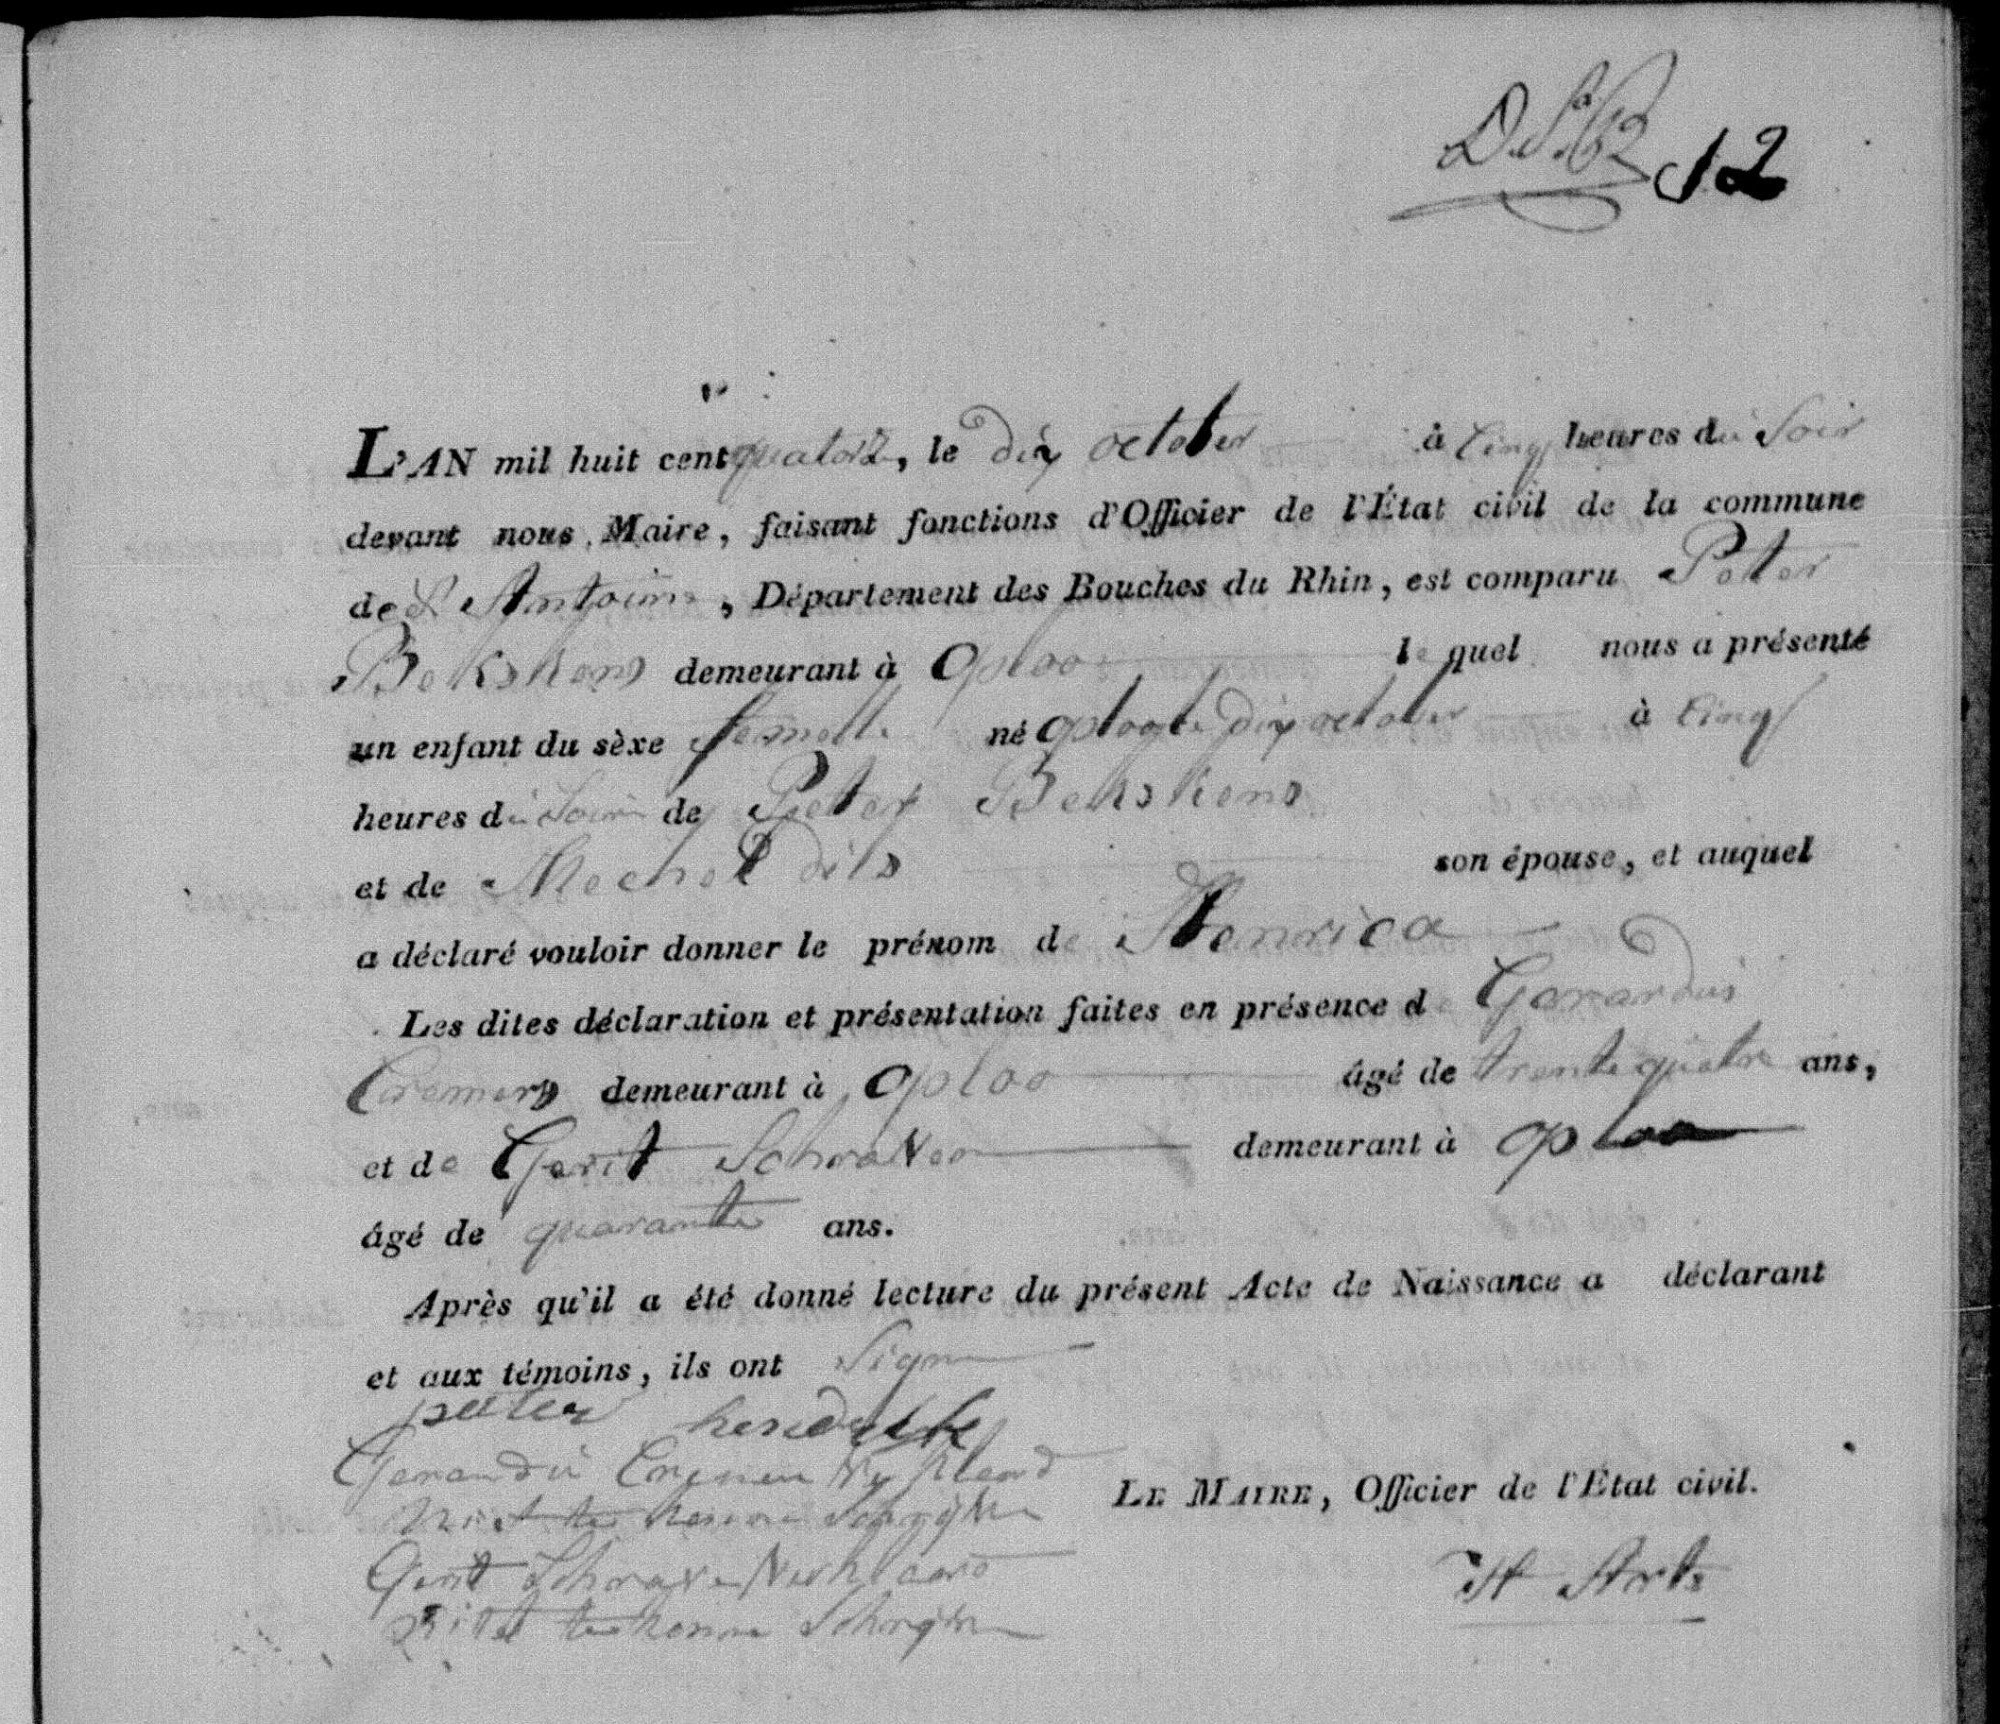 12
L'AN mil huit cent quatorze, le dix october à Cinq heures du Soir
devant nous Maire, faisant fonctions d'Officier de l'État civil de la commune
de St Antoine, Département des Bouches du Rhin, est comparu Peter
demeurant à Oploo le quel nous a présenté
un enfant du sèxe femelle né oploo le dix october à Cinq
heures du Soir de Peter
et de Mechel dils son épouse, et auquel
a déclaré vouloir donner le prénom de Henrica
Les dites déclaration et présentation faites en présence de Gerardus
Cremers demeurant à oploo âgé de trente quatre ans,
et de Gerit Schraven demeurant à oploo
âgé de quarante ans.
Après qu'il a été donné lecture du présent Acte de Naissance a déclarant
et aux témoins, ils ont Signe
peeter
Gerardus Cremers
LE MAIRE, Officier de l'État civil.
Gerit Schraven Verklaard
H Arts